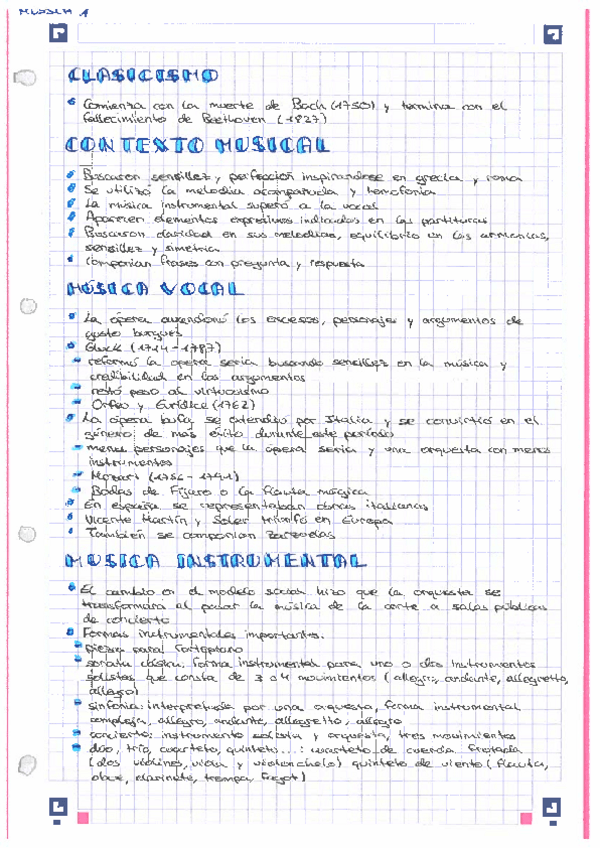 MUSICA 1
CLASICISMO
Comienza con la muerte de Bach (1750) y termina con el
fallecimiento de Beethoven (1827)
CONTEXTO MUSICAL
Buscaron sencillez y perfección inspirandose en grecia y roma
Se utilizó la melodia acompañada y homofonia
La música instrumental superó a la vocal
Aparecen elementos expresivos indicados en las partituras
Buscaron claridad en sus melodias, equilibrio en las armonias,
sencillez y simetria
Componian frases con pregunta y respuesta
MÚSICA VOCAL
La ópera los excesos, personajes y argumentos de
gusto burgués
Gluck (1714-1787)
reformó la opera seria buscando sencillez en la música y
credibilidad en los argumentos
restó peso al virtuosismo
Orfeo y Euridice (1762)
La ópera bufa se extendió por Italia y se convirtió en el
género de más éxito durante este periodo
menos personajes que la opera seria y una orquesta con menos
instrumentos
Mozart (1756-1791)
Bodas de Figaro o la flauta mágica
En españa se representaban obras italianas
Vicente Martín y Soler triunfó en Europa
También se componian zarzuelas
MUSICA INSTRUMENTAL
El cambio en el modelo social hizo que la orquesta se
transformara al pasar la música de la corte a salas públicas
de concierto
Formas instrumentales importantes:
piezas para fortepiano
sonata clásica: forma instrumental para uno o dos instrumentos
solistas que consta de 3 o 4 movimientos (allegro, andante, allegretto,
allegro)
sinfonia: interpretada por una orquesta, forma instrumental
compleja, allegro, andante, allegretto, allegro
concierto: instrumento solista y orquesta, tres movimientos
dúo, trío, cuarteto, quinteto...: cuarteto de cuerda frotada
(dos violines, viola y violonchelo) quinteto de viento (flauta,
oboe, clarinete, trompa, fagot)